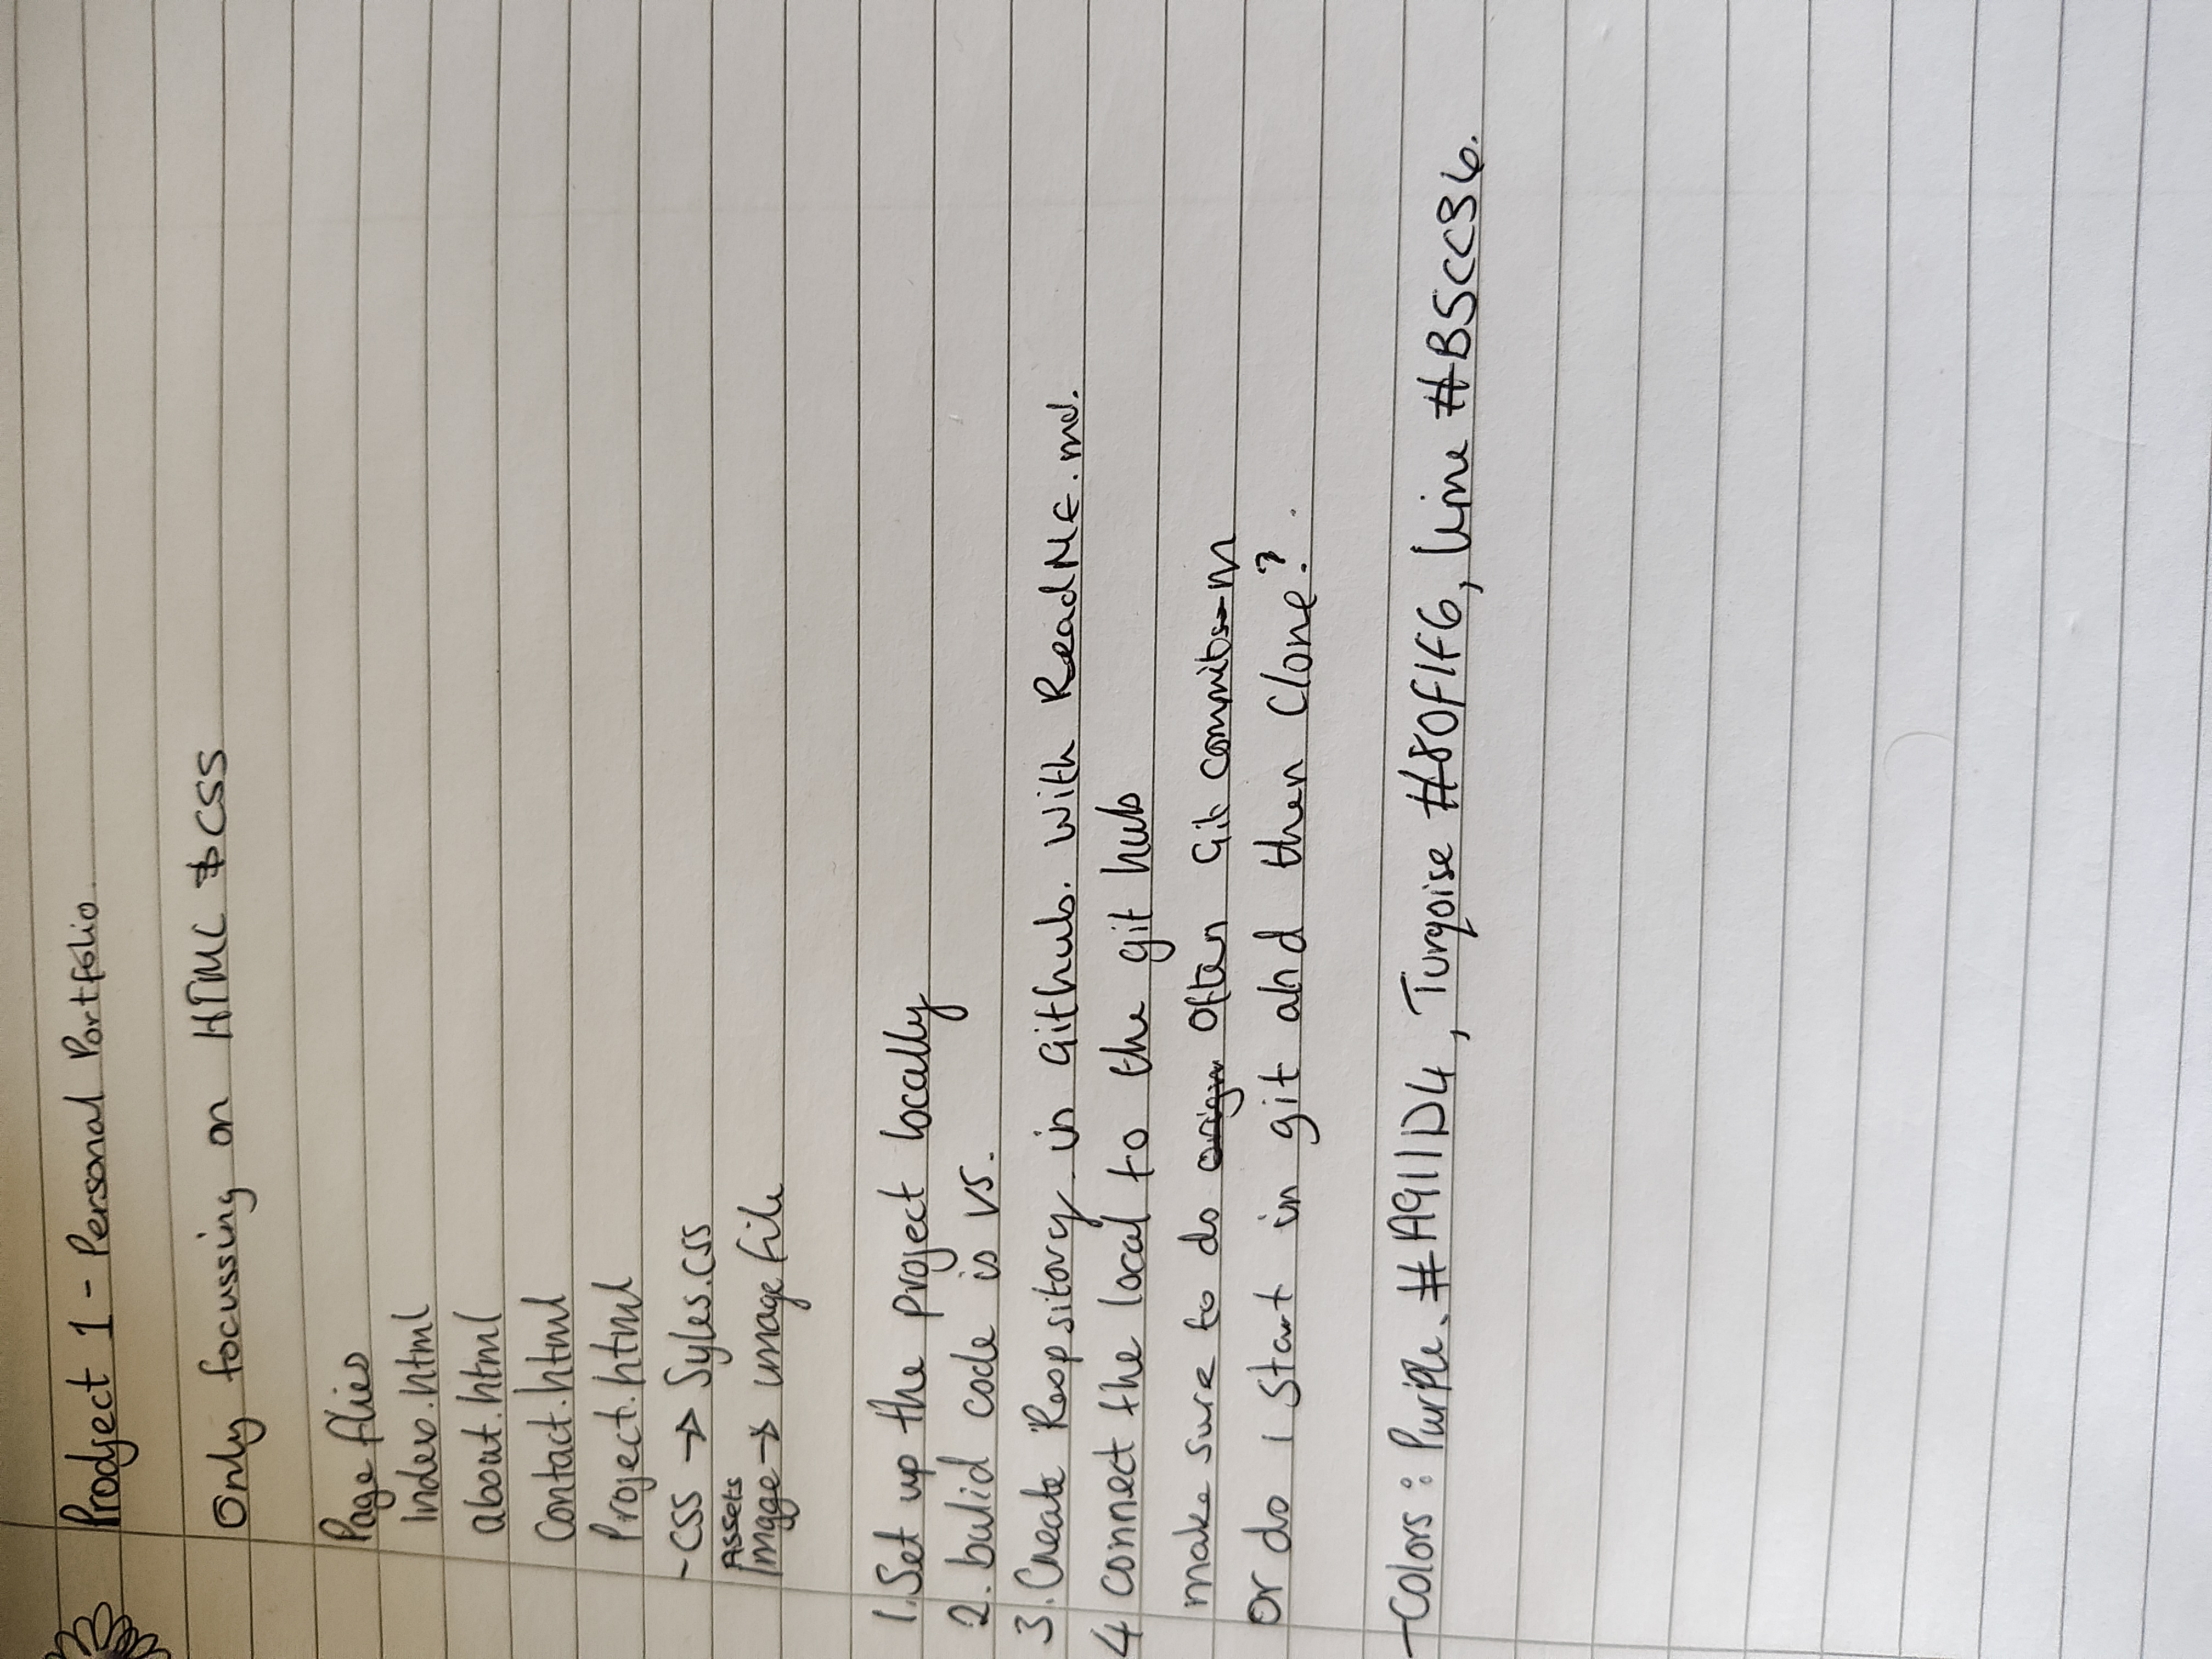 Prodject 1 - Personal Portfolio.
Only focussing on HTML & CSS
Page flies
Index.html
about.html
Contact.html
Project.html
- CSS → Syles.css
Assets
Image → image file
1. Set up the project locally
2. bulid code is VS.
3. Create Reopsitory in Github. With ReadME.md.
4 connect the local to the git hub
make sure to do often Git commits -m
or do i start in git and then Clone?
- Colors : Purple. #A911D4, Turqoise #80F1F6, lime #B5CC36.